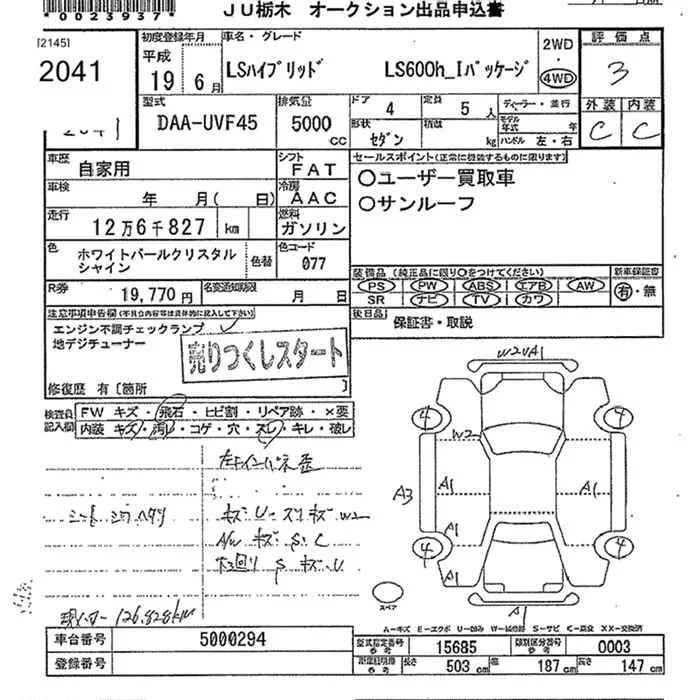 *0023937*
JU栃木 オークション出品申込書
[2145]
2041
2041
初度登録年月
平成
19 6月
車名・グレード
LSハイブリッド LS600h_Iパッケージ
2WD
4WD
評価点
3
外装 内装
C C
型式
DAA-UVF45
排気量
5000
CC
ドア
4
定員
5人
形状
セダン
積載
kg
ディーラー・並行
モデル年式 年
ハンドル 左・右
車歴
自家用
シフト
FAT
車検
年 月( 日)
冷房
AAC
走行
12万6千827 km
燃料
ガソリン
色
ホワイトパールクリスタル
シャイン
色替
色コード
077
R券
19,770円
名変通知期限
月 日
セールスポイント(正常に機能するものに限ります)
○ユーザー買取車
○サンルーフ
装備品(純正品に限り○をつけてください)
新車保証書
PS PW ABS エアB AW
SR ナビ TV カワ
有・無
後日品
保証書・取説
注意事項申告欄(不具合内容等は具体的に記入して下さい)
エンジン不調チェックランプ
地デジチューナー
売りつくしスタート
修復歴 有〔箇所 〕
検査員
記入欄
FW キズ・飛石・ヒビ割・リペア跡・×要
内装 キズ・汚レ・コゲ・穴・スレ・キレ・破レ
キズ U
A/W キズ S.C
下回り S キズ U
126,828km
W2UA1
4 4
W2
A3 A1 A1
A1
4 4
A1
スペア
A1
A－キズ E－エクボ U－凹み W－補修跡 S－サビ C－腐食 XX－交換済
車台番号
5000294
登録番号
型式指定番号
参考
15685
類別区分番号
参考
0003
長さ 503 cm
幅 187 cm
高さ 147 cm